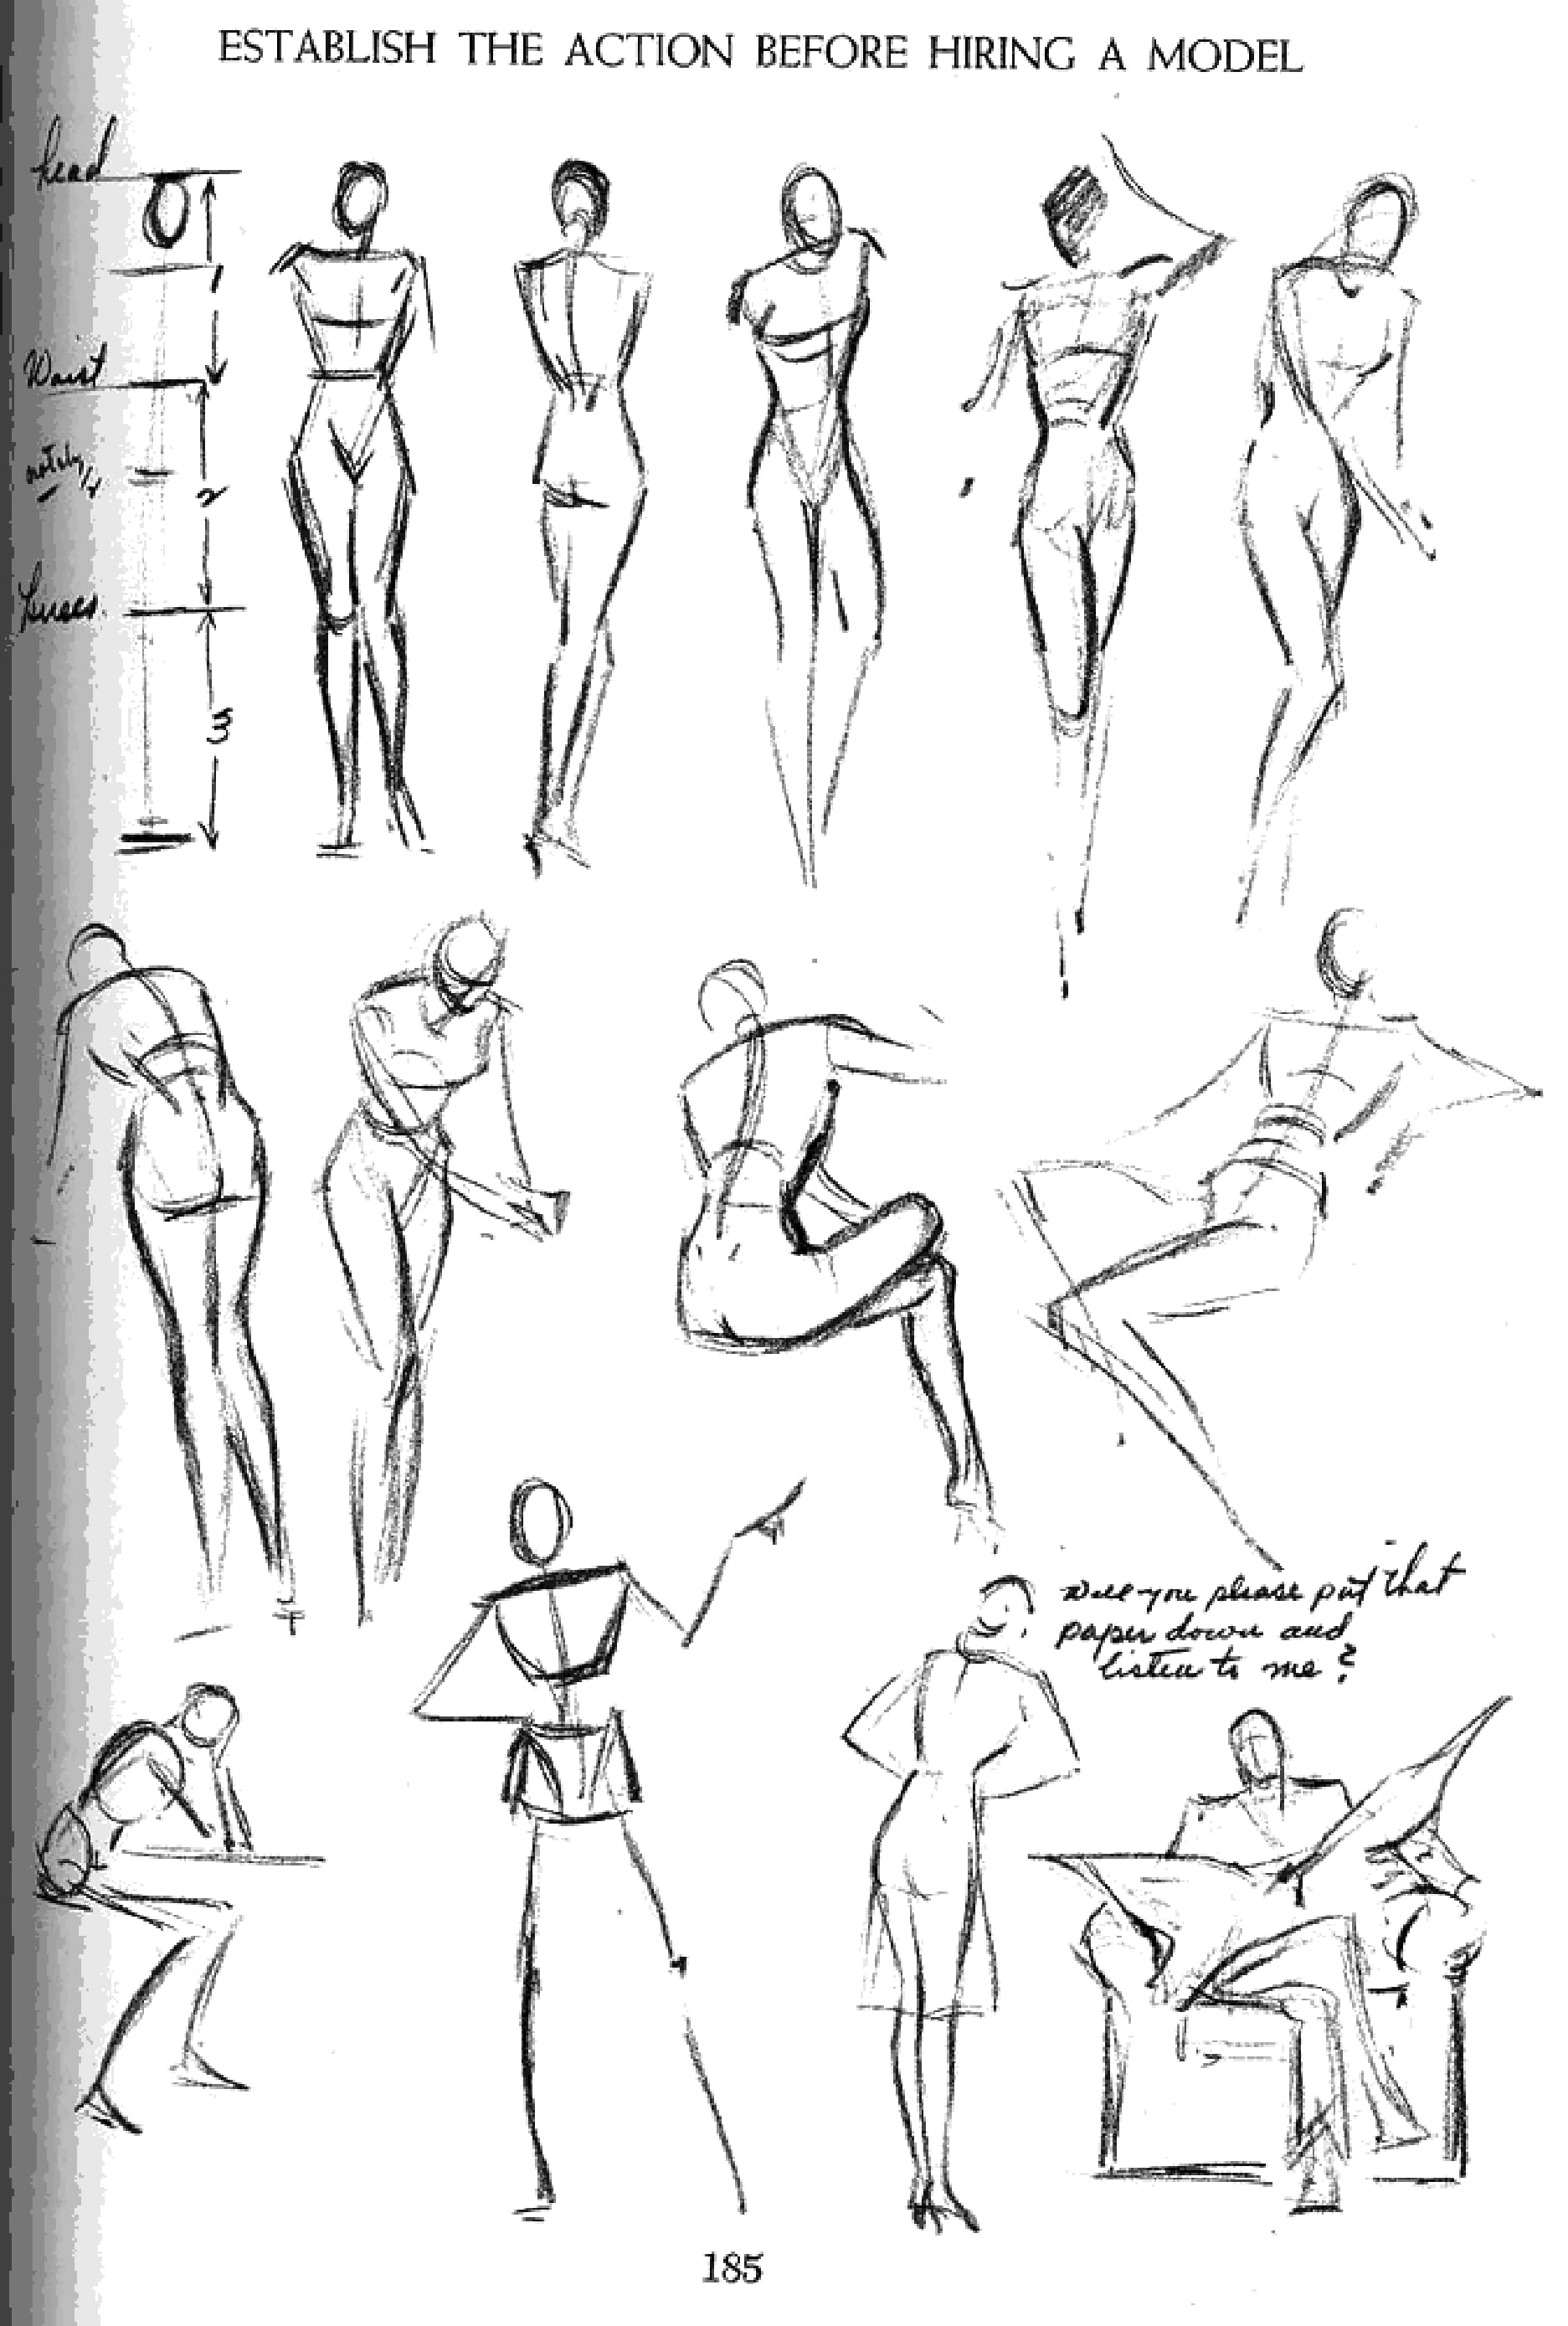 ESTABLISH THE ACTION BEFORE HIRING A MODEL
head
1
Waist
2
Knees.
3
Will you please put that
paper down and
listen to me?
185